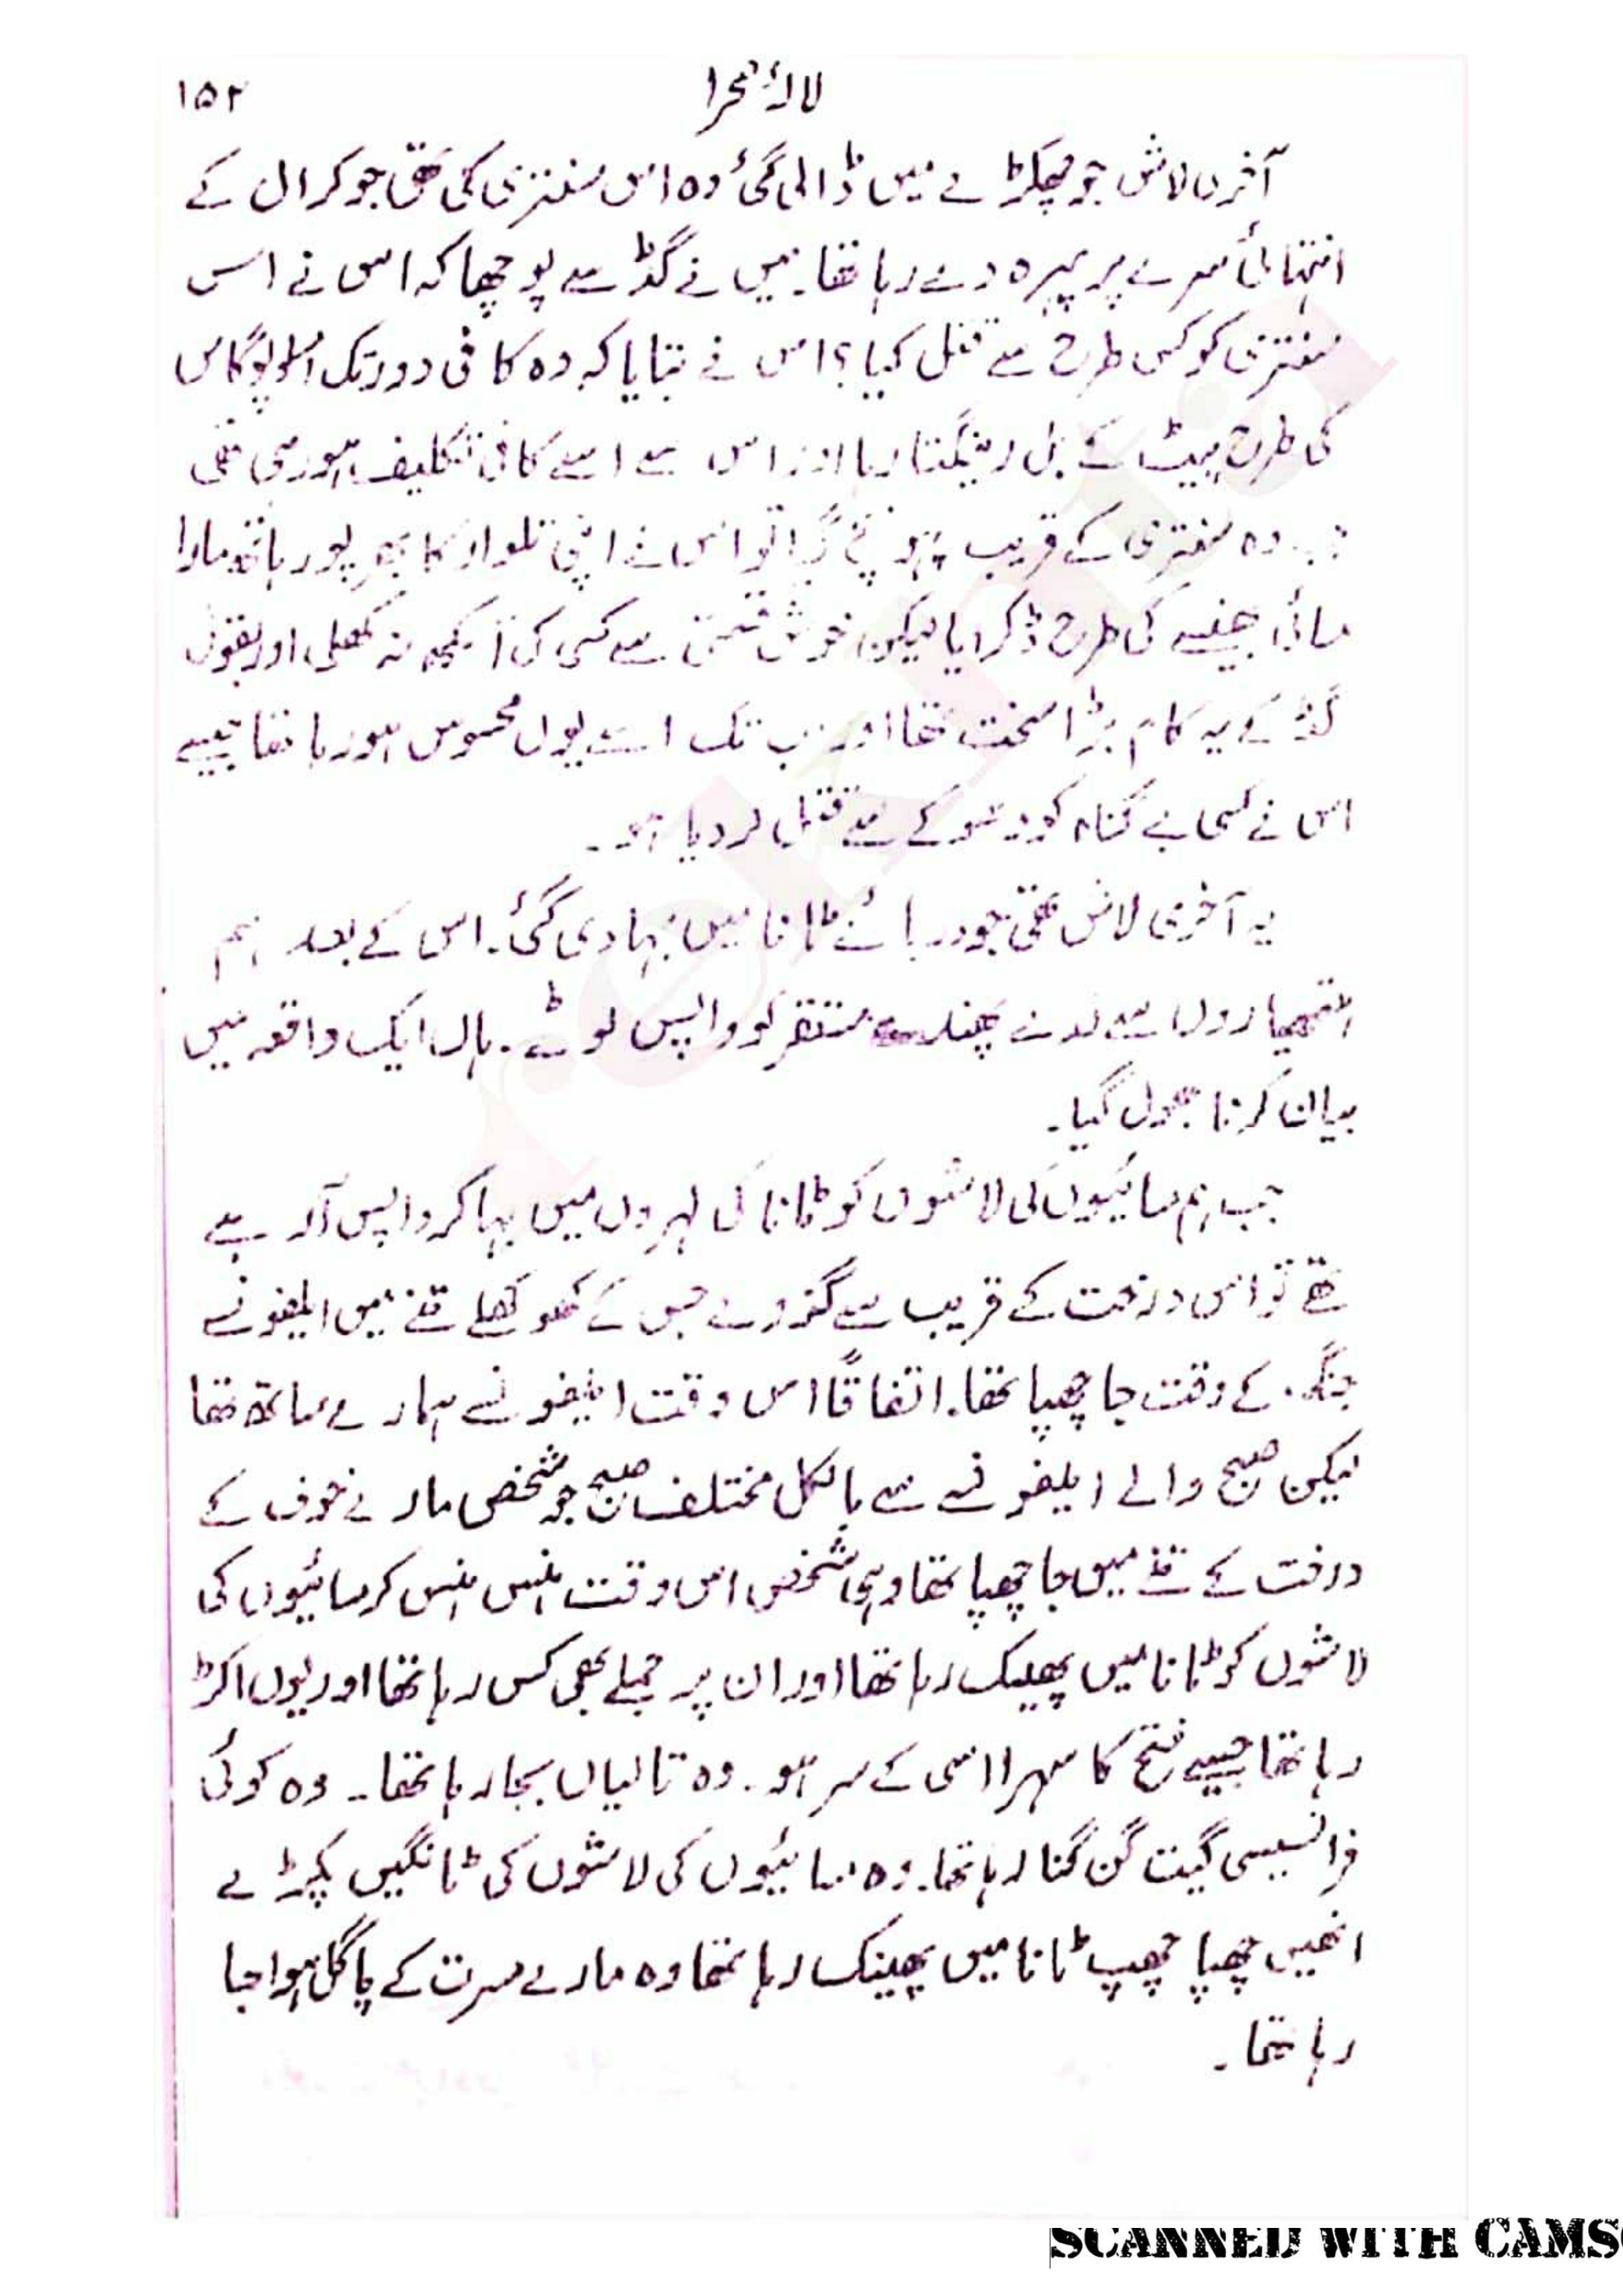 لالۂ صحرا ۱۵۲
آخری لاش جو چھکڑے میں ڈالی گئی وہ اس سنتری کی تھی جو کرال کے
انتہائی سرے پر پہرہ دے رہا تھا۔ میں نے گڈ سے پوچھا کہ اس نے اس
سنتری کو کس طرح سے قتل کیا؟ اس نے بتایا کہ وہ کافی دور تک امسلوپوگاس
کی طرح پیٹ کے بل رینگتا رہا اور اس سے اسے کافی تکلیف ہو رہی تھی
جب وہ سنتری کے قریب پہونچ گیا تو اس نے اپنی تلوار کا بھرپور ہاتھ مارا
مسائی بھینسے کی طرح ڈکرایا لیکن خوش قسمتی سے کسی کی آنکھ نہ کھلی اور بقول
گڈ کے یہ کام بڑا سخت تھا اور اب تک اسے یوں محسوس ہو رہا تھا جیسے
اس نے کسی بے گناہ کو دھوکے سے قتل کر دیا ہو۔
یہ آخری لاش تھی جو دریائے ٹانا میں بہا دی گئی۔ اس کے بعد ہم
ہتھیاروں سے لدے پھندے مستقر کو واپس لوٹے۔ ہاں ایک واقعہ میں
بیان کرنا بھول گیا۔
جب ہم مسائیوں کی لاشوں کو ٹانا کی لہروں میں بہا کر واپس آ رہے
تھے تو اس درخت کے قریب سے گزرے جس کے کھوکھلے تنے میں ایلفونسے
جنگ کے وقت جا چھپا تھا۔ اتفاقاً اس وقت ایلفونسے ہمارے ساتھ تھا
لیکن صبح والے ایلفونسے سے بالکل مختلف صبح جو شخص مارے خوف کے
درخت کے تنے میں جا چھپا تھا وہی شخص اس وقت ہنس ہنس کر مسائیوں کی
لاشوں کو ٹانا میں پھینک رہا تھا اور ان پر جملے بھی کس رہا تھا اور یوں اکڑ
رہا تھا جیسے فتح کا سہرا اسی کے سر ہو۔ وہ تالیاں بجا رہا تھا۔ وہ کوئی
فرانسیسی گیت گن گنا رہا تھا۔ وہ مسائیوں کی لاشوں کی ٹانگیں پکڑے
انھیں چھپا چھپ ٹانا میں پھینک رہا تھا وہ مارے مسرت کے پاگل ہوا جا
رہا تھا۔
SCANNED WITH CAMS